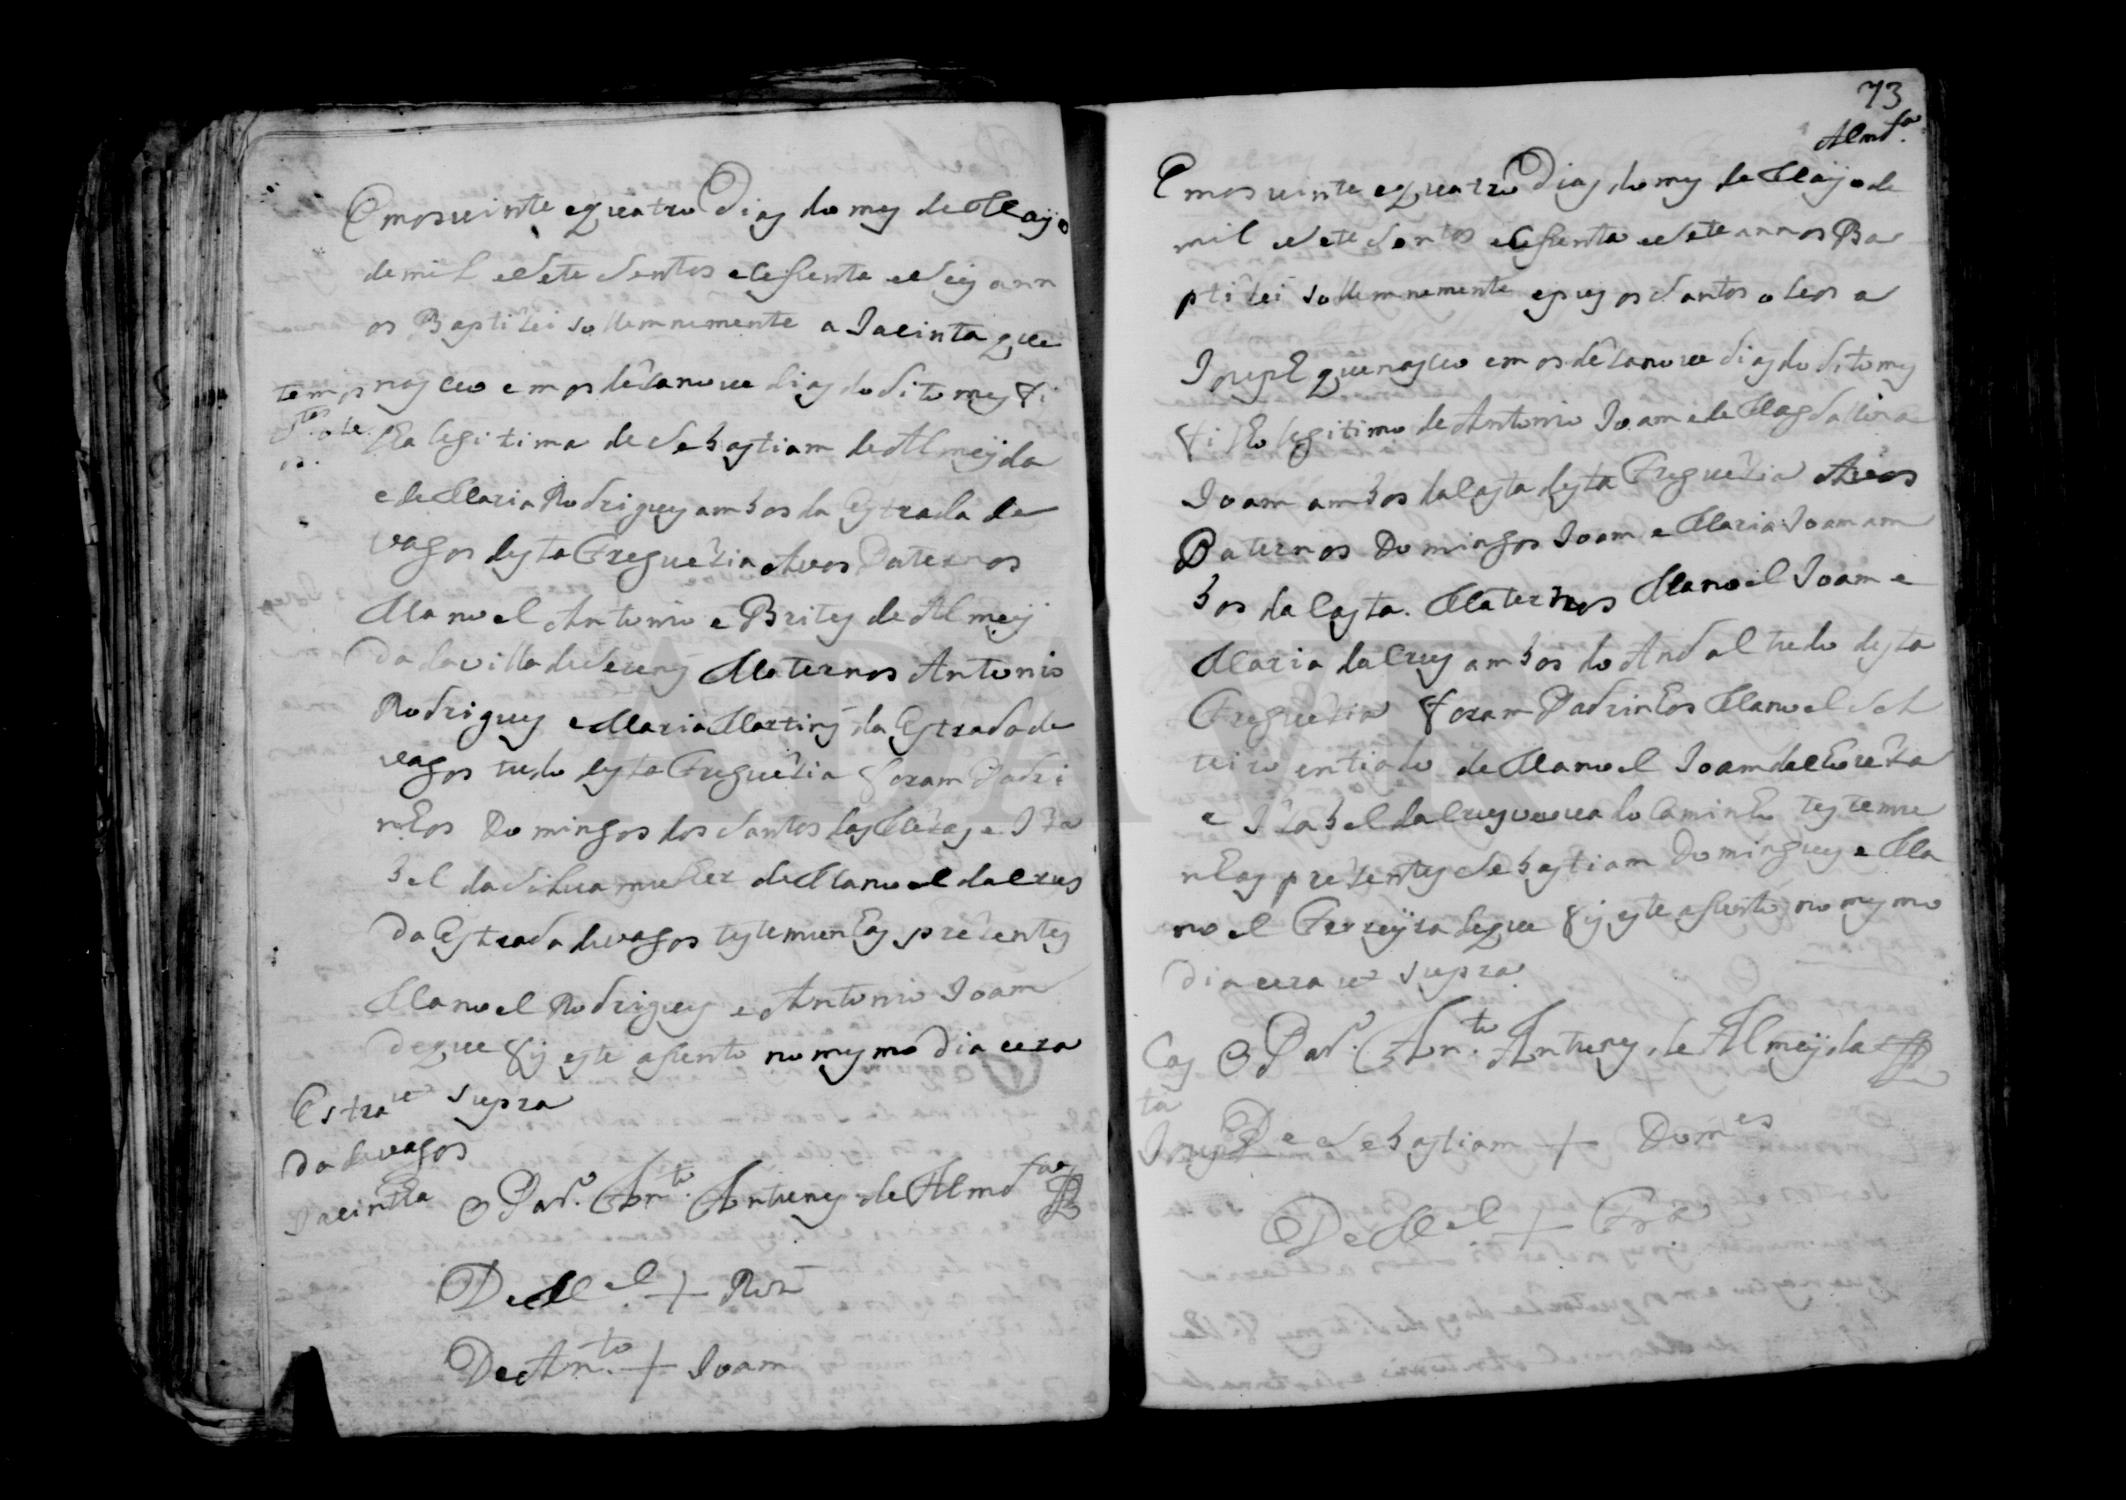 Em os vinte e quatro Dias do mes de Mayo
de mil e Sete Sentos e Cessenta e Seis ann
os Baptizei Sollemnemente a Jacinta que
tem os nasceo em os dezanove dias do dito mes fi
stos ole
os.
lha legitima de Sebastiam de Almeyda
e de Maria Rodrigues ambos da Estrada de
vagos desta Freguezia Avos Paternos
Manoel Antonio e Brites de Almey
da da villa de Serem Maternos Antonio
Rodrigues e Maria Martins da Estrada de
vagos tudo desta Freguezia foram Padri
nhos Domingos dos Santos das Mezas e Iza
bel da Silva mulher de Manoel da Crus
da Estrada de vagos testemunhas prezentes
Manoel Rodrigues e Antonio Joam
de que fis este asento no mesmo dia e era
ut supra
Estra
da de vagos
Jacintha
O Pad.e Ant.o Antunes de Almd.a
De M.el + Roiz
De Ant.o + Joam
73
Almd.a
Em os vinte e quatro Dias do mes de Mayo de
mil e Sete Sentos e Cessenta e Sete annos Ba
ptizei Sollemnemente e pus os Santos oleos a
Joseph que nasceo em os dezanove dias do dito mes
filho legitimo de Antonio Joam e de Magdallena
Joam ambos da Costa desta Freguezia Avos
Paternos Domingos Joam e Maria Joam am
bos da Costa. Maternos Manoel Joam e
Maria da Crus ambos do Andal tudo desta
Freguezia foram Padrinhos Manoel Sol
teiro entiado de Manoel Joam da
e Izabel da Crus veuva do Caminho testemu
nhas prezentes Sebastiam Domingues e Ma
noel Ferreyra de que fis este asento no mesmo
dia e era ut supra
Cos
ta
Joseph
O Pad.e Ant.o Antunes de Almeyda
De Sebastiam + Dom.es
De M.el + Fr.a